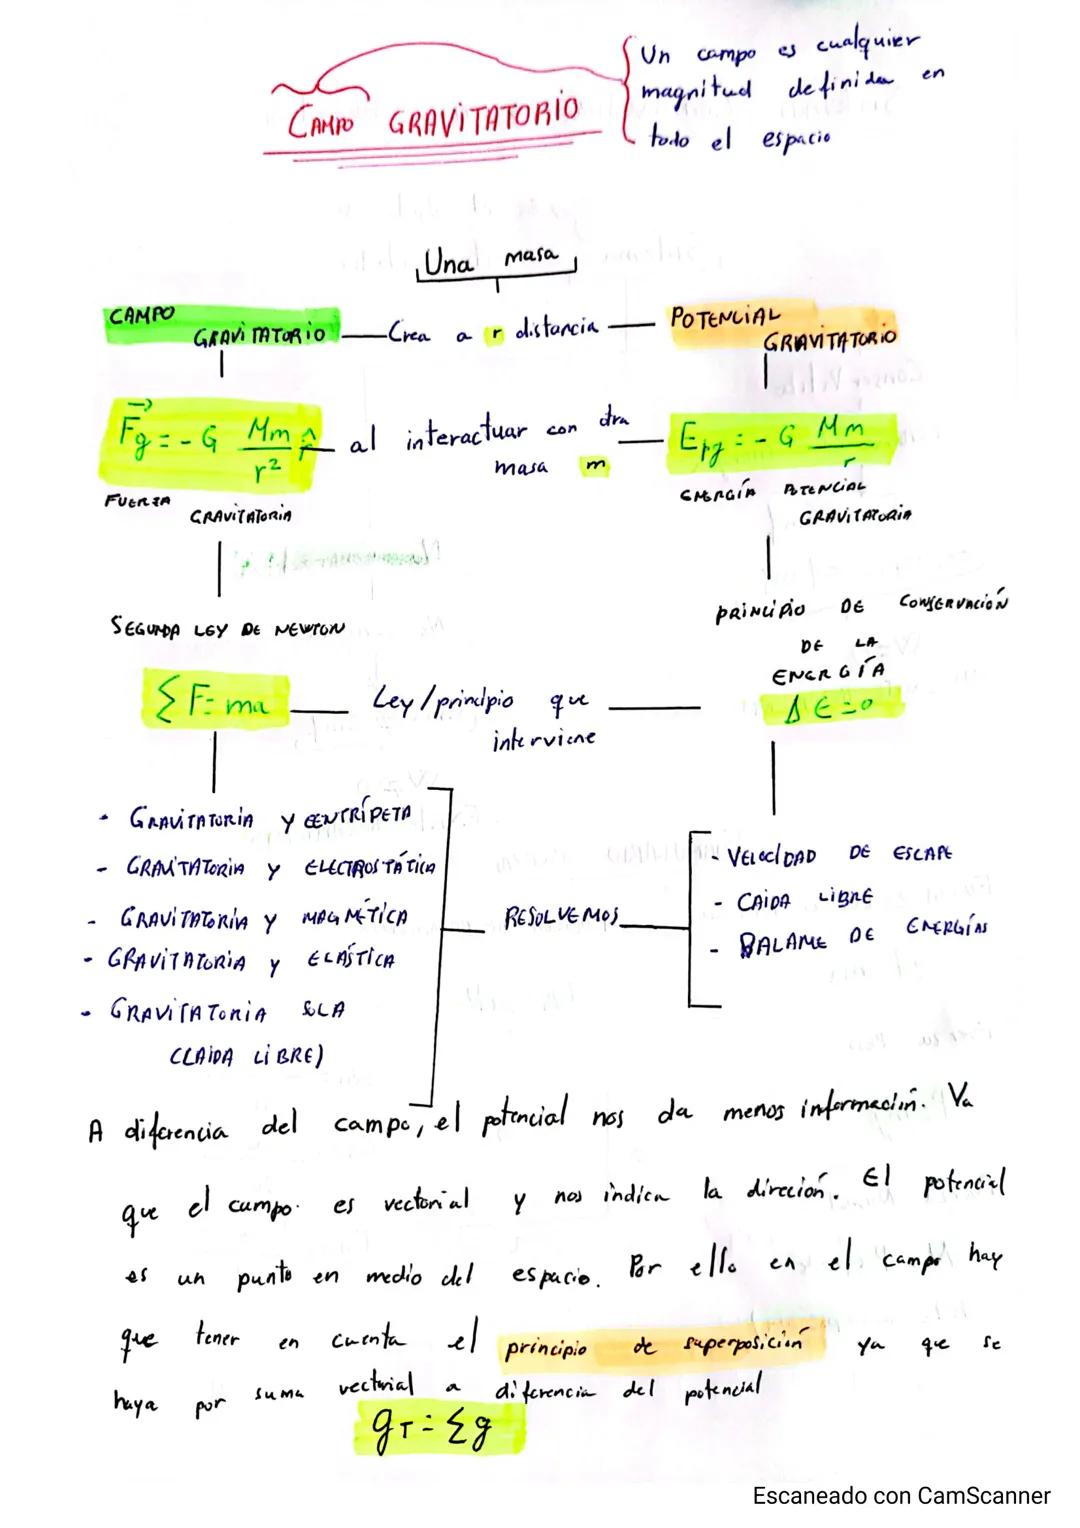 Un campo es cualquier
magnitud definida en
todo el espacio
CAMPO GRAVITATORIO
Una masa
CAMPO
GRAVITATORIO
Crea a r distancia
POTENCIAL
GRAVITATORIO
Fg = - G Mm/r² r̂
al interactuar con otra
masa m
Epg = - G Mm/r
FUERZA
GRAVITATORIA
ENERGÍA POTENCIAL
GRAVITATORIA
SEGUNDA LEY DE NEWTON
PRINCIPIO DE CONSERVACIÓN
DE LA
ENERGÍA
Σ F = ma
Ley/principio que
interviene
Δ E = 0
- GRAVITATORIA Y CENTRÍPETA
- GRAVITATORIA Y ELECTROSTÁTICA
- GRAVITATORIA Y MAGNÉTICA
- GRAVITATORIA Y ELÁSTICA
- GRAVITATORIA SOLA
(CAIDA LIBRE)
RESOLVEMOS
- VELOCIDAD DE ESCAPE
- CAIDA LIBRE
- BALANCE DE ENERGÍAS
A diferencia del campo, el potencial nos da menos información. Ya
que el campo es vectorial y nos indica la direción. El potencial
es un punto en medio del espacio. Por ello en el campo hay
que tener en cuenta el principio de superposición ya que se
haya por suma vectorial a diferencia del potencial
gT = Σg
Escaneado con CamScanner